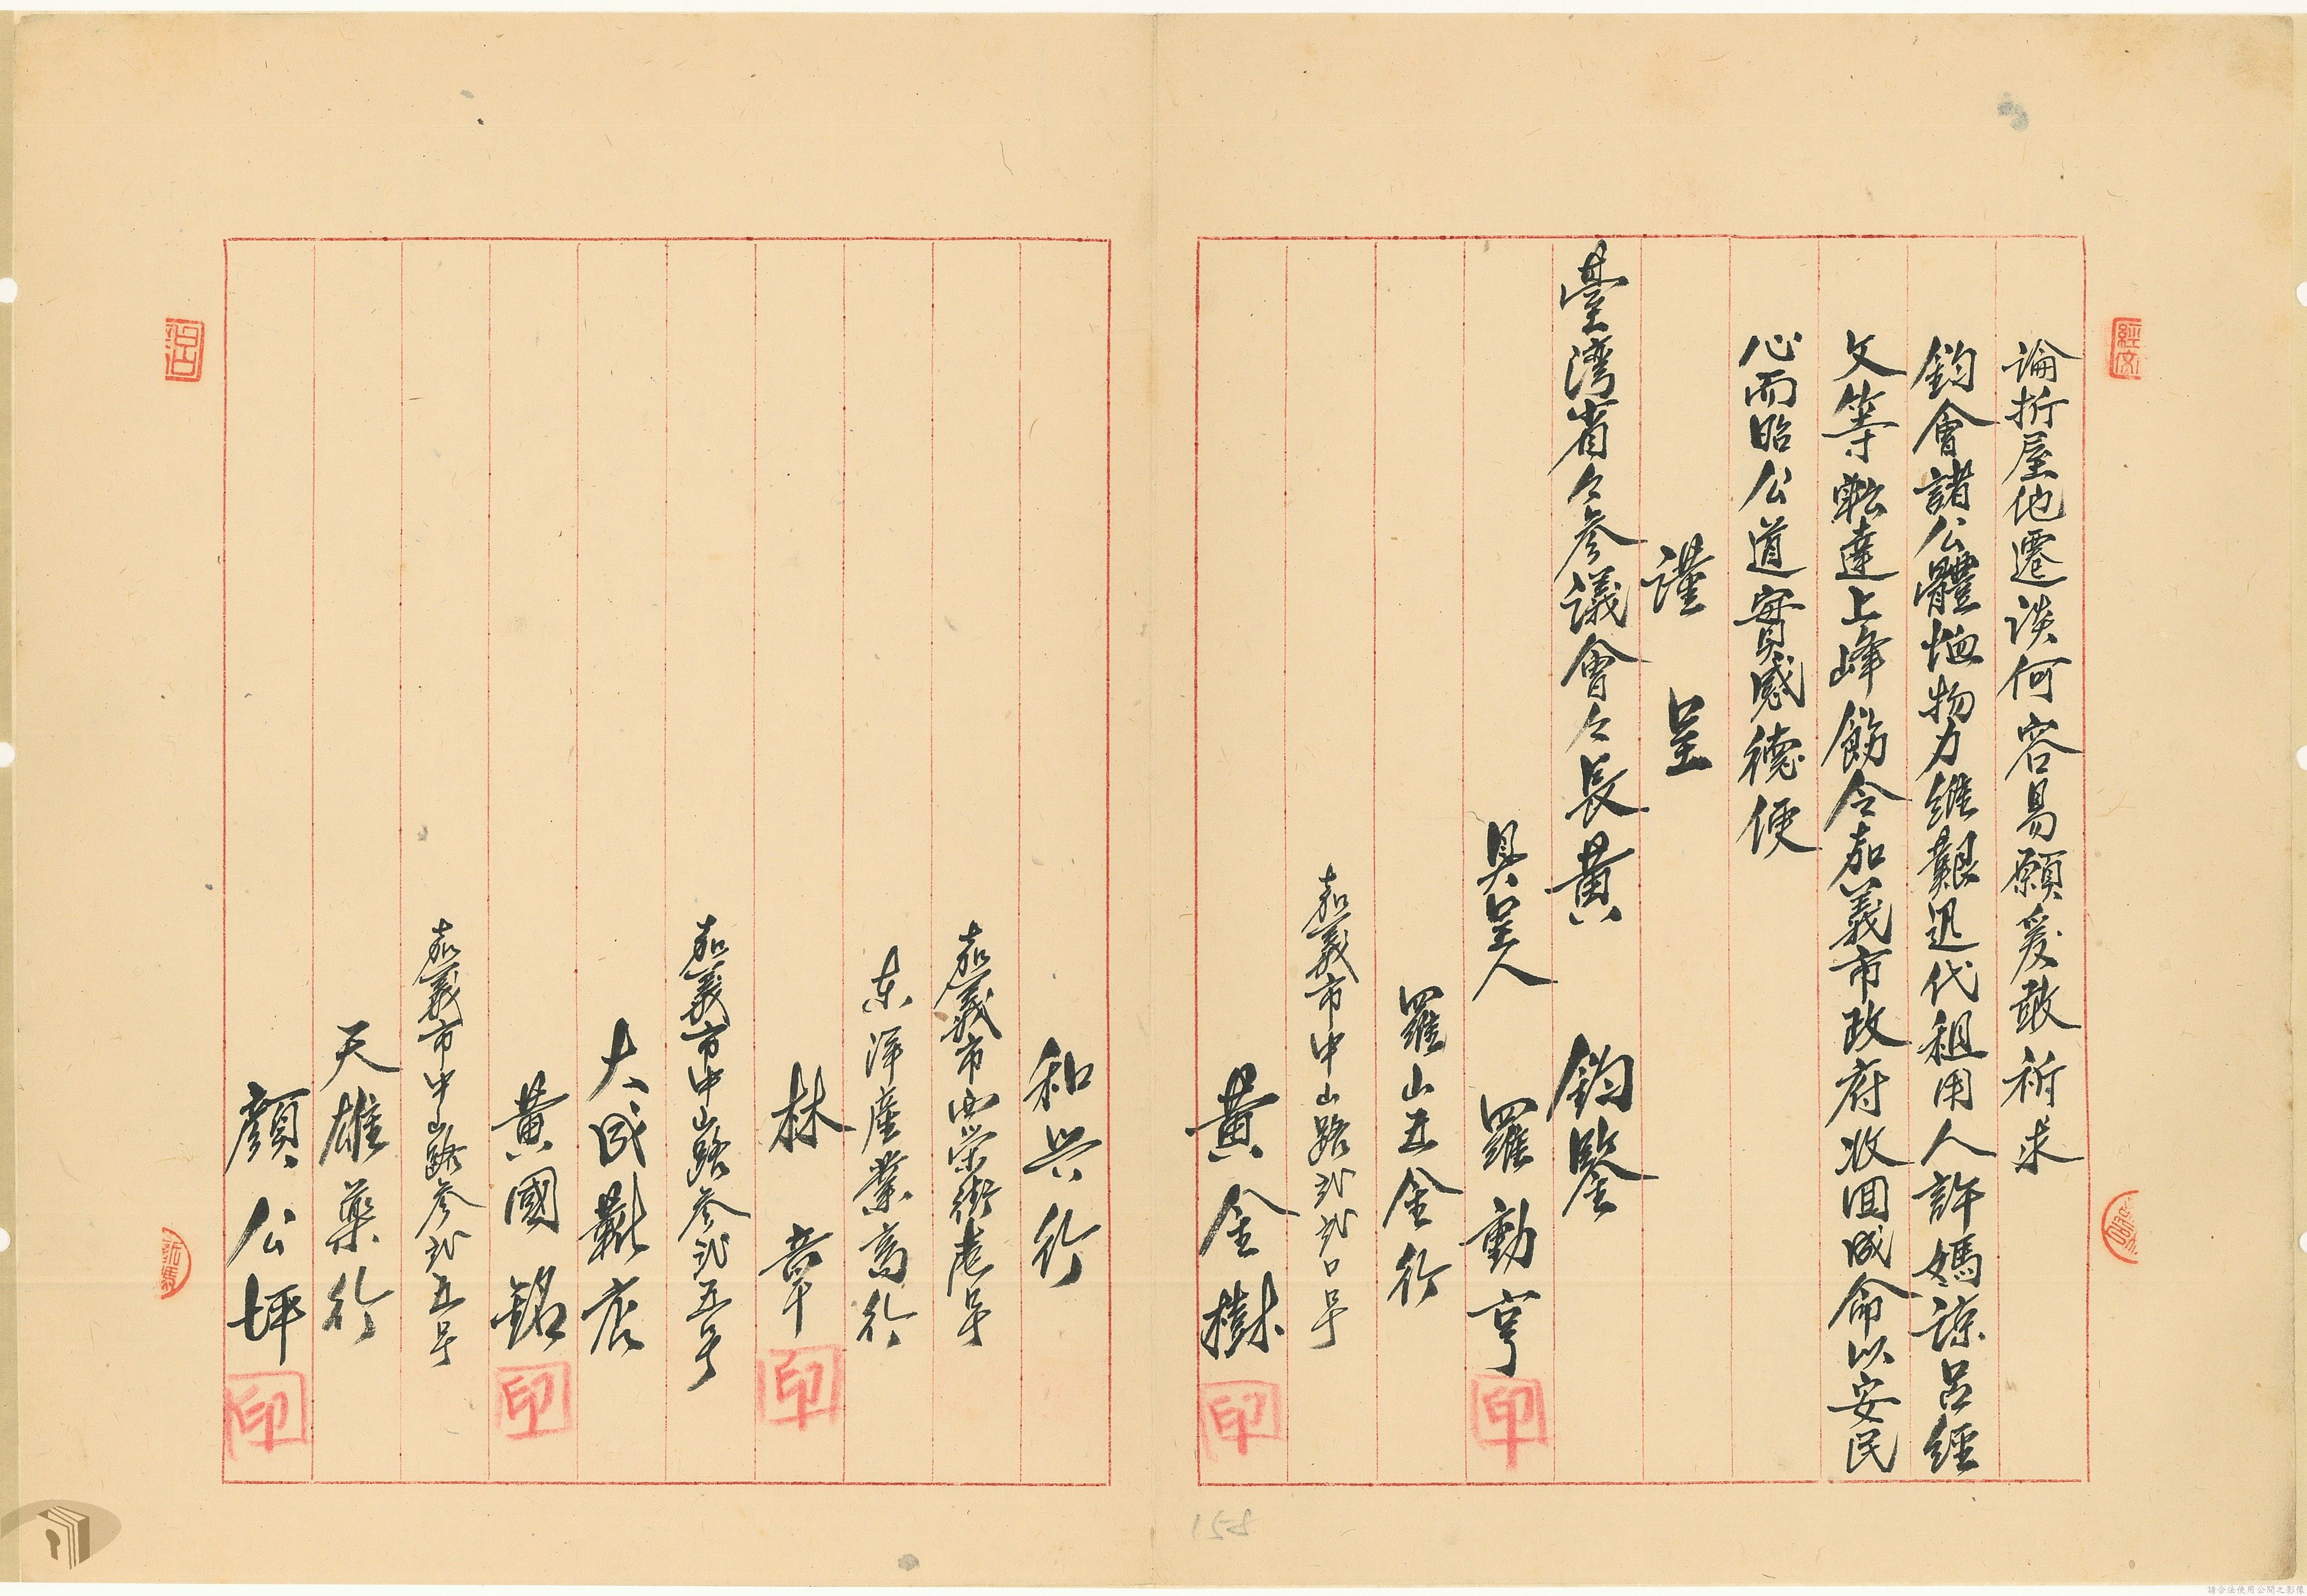 論折屋他遷談何容易願爰敢祈求
鈞會諸公體恤物力維艱迅代租用人許媽諒呂經
文等転達上峰飭令嘉義市政府收回成命以安民
心而昭公道實感德便
謹呈
臺湾省々參議會々長黃 鈞鑒
具呈人 羅動亨 印
羅山五金行
嘉義市中山路弍弍口号
黃金樹 印
和兴行
嘉義市西荣街壱号
東洋產業商行
林章 印
嘉義市中山路參弍五号
大成靴店
黃國銘 印
嘉義市中山路參弍五号
天雄藥行
顏公坪 印
經文
呂
158
請合法使用公開之影像